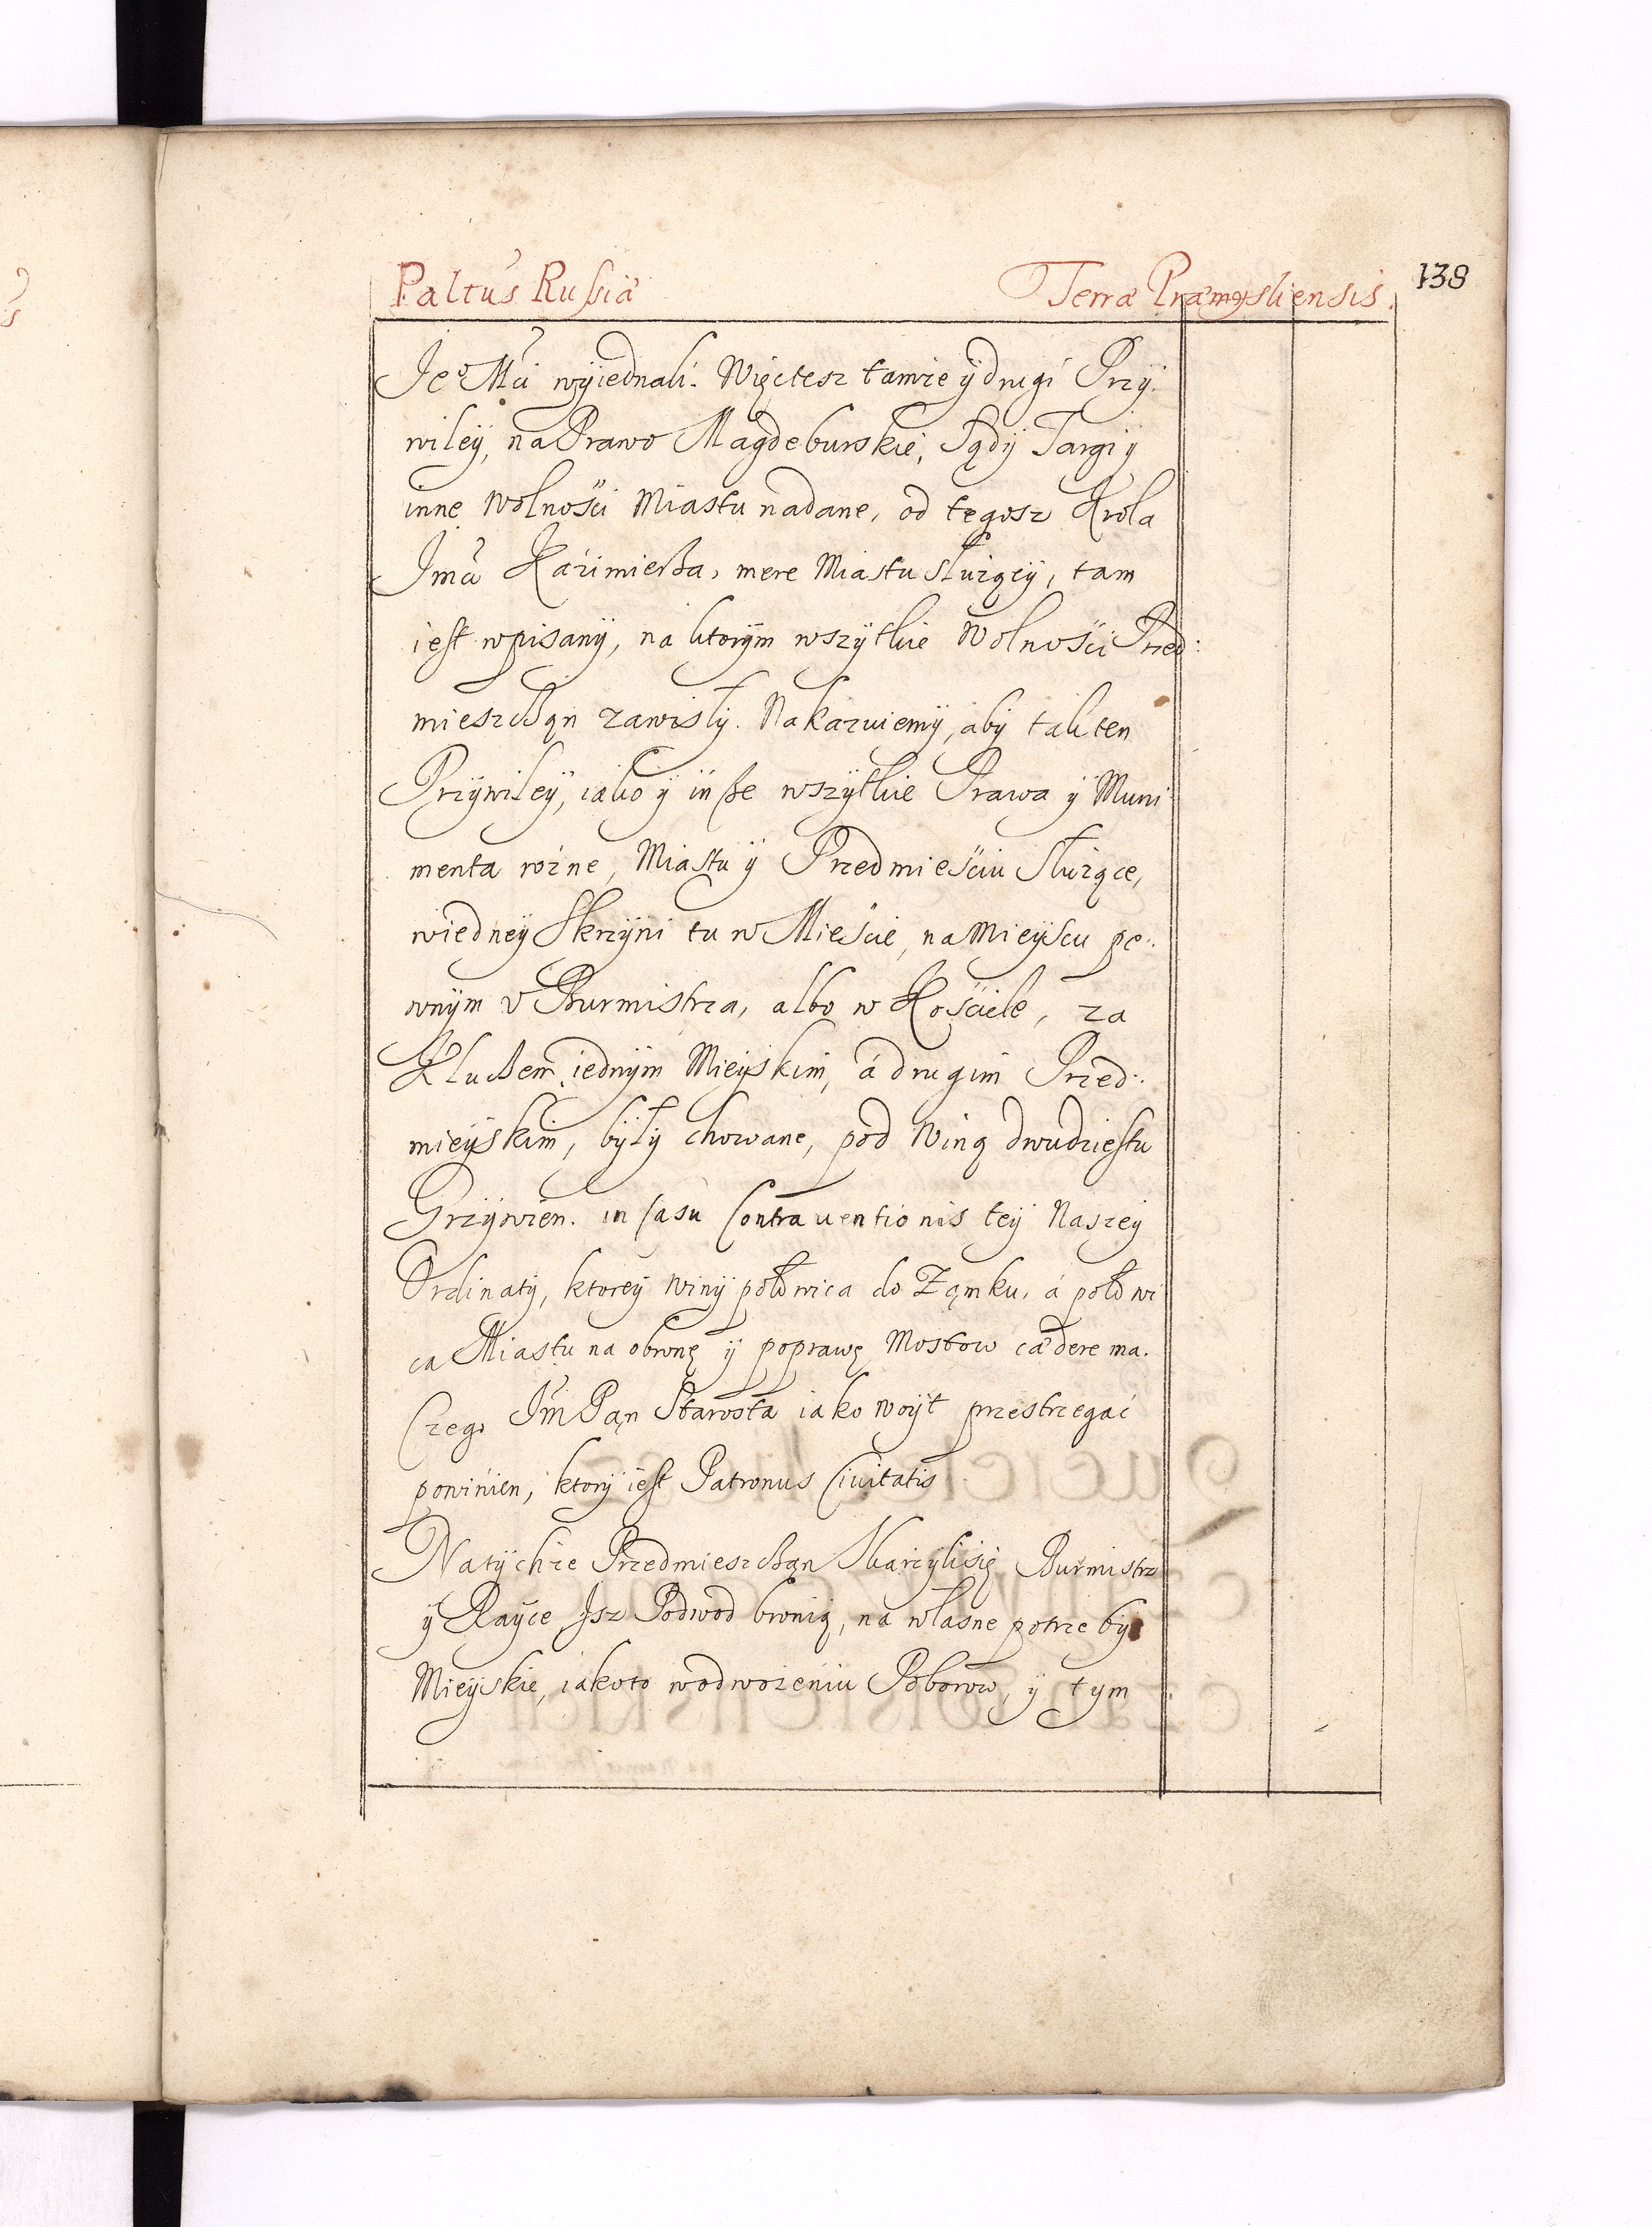 Paltus Russiæ
Terræ Præmysliensis.
138
Je⁰ Mci wyiednali. Więc tesz tamże y drugi Przy:
wiley, na Prawo Magdeburskie, Sądy Targi y
inne Wolności Miastu nadane, od tegosz Krola
Jmci Kaźimierza, mere Miastu słuzący, tam
iest wpisany, na ktorym wszytkie Wolności Przed:
mieszczan zawisły. Nakazuiemy, aby tak ten
Przywiley, iako y insze wszytkie Prawa y Muni
menta rożne, Miastu y Przedmieściu służące,
wiedney Skrzyni tu w Mieście, na Mieyscu pe:
wnym v Burmistrza, albo w Kościele, za
Kluczem iednym Mieyskim, á drugim Przed:
mieyskim, były chowane, pod Winą dwudziestu
Grzywien. in Casu Contrauentionis tey Naszey
Ordinaty, ktorey winy połowica do Zamku, á połowi
ca Miastu na obronę y poprawę Mostow cadere ma.
Czego Jm̃ Pan Starosta iako Woyt przestrzegać
powinien, ktory iest Patronus Ciuitatis
Natychże Przedmieszczan Skarzyli się Burmistrz
y Rayce Jsz Podwod bronią, na własne potrzeby
Mieyskie, iakoto wodwożeniu Poborow, y tym